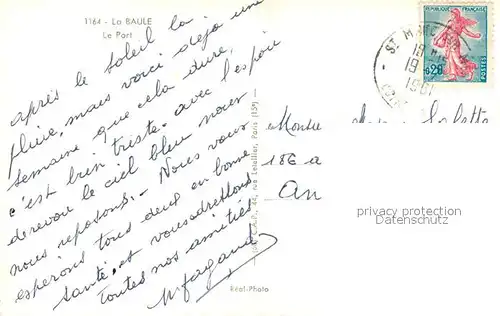 1164 - La BAULE
Le Port
après le soleil la
pluie, mais voici déjà une
semaine que cela dure,
c'est bien triste. avec l'espoir
de revoir le ciel bleu nous
nous reposons. - Nous vous
espérons tous deux en bonne
santé et vous adressons
toutes nos amitiés
Réel-Photo
C.A.P., 44, rue Letellier, Paris (15e)
REPUBLIQUE FRANÇAISE
0,20
POSTES
ST M
18 H
19
1961
186 a
privacy protection
Datenschutz